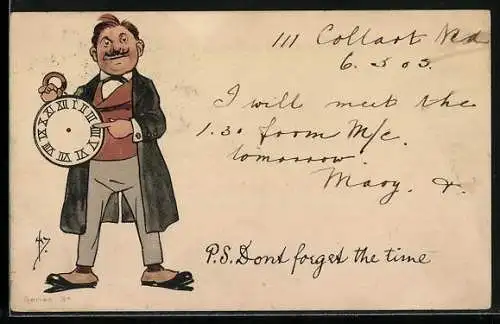 111 Collart Rd
6.5.03.
I will meet the
1.30 from M/c.
tomorrow.
Mary. x.
P.S. Dont forget the time
XII I II III IIII V VI VII VIII IX X XI